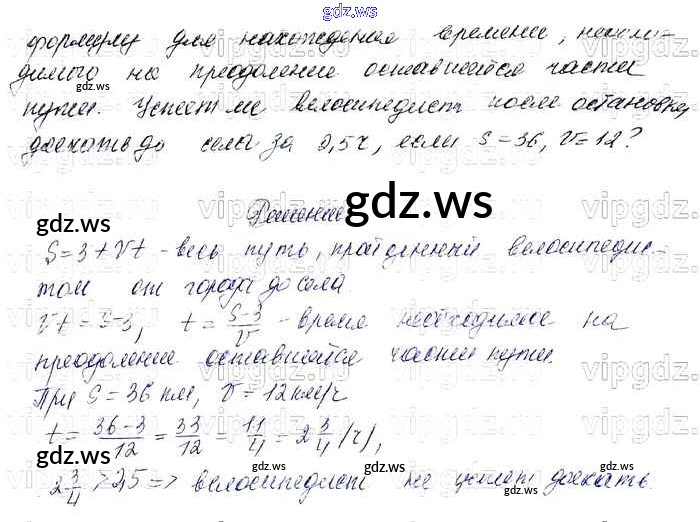 gdz.ws
формулу для нахождения времени, необхо-
димого на преодоление оставшейся части
пути. Успеет ли велосипедист после остановки
доехать до села за 2,5ч, если s=36, v=12?
Решение
gdz.ws
S=3+Vt - весь путь, пройденный велосипедис-
том от города до села.
Vt=S-3, t=\frac{S-3}{V} - время необходимое на
преодоление оставшейся части пути.
При S=36 км, V=12 км/ч
t=\frac{36-3}{12}=\frac{33}{12}=\frac{11}{4}=2\frac{3}{4}(ч),
2\frac{3}{4}>2,5 => велосипедист не успеет доехать.
gdz.ws